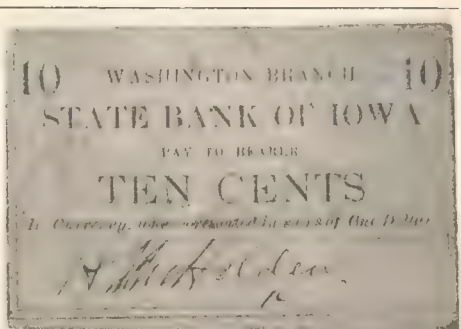 10 WASHINGTON BRANCH 10
STATE BANK OF IOWA
PAY TO BEARER
TEN CENTS
In Currency, when presented in sums of One Dollar